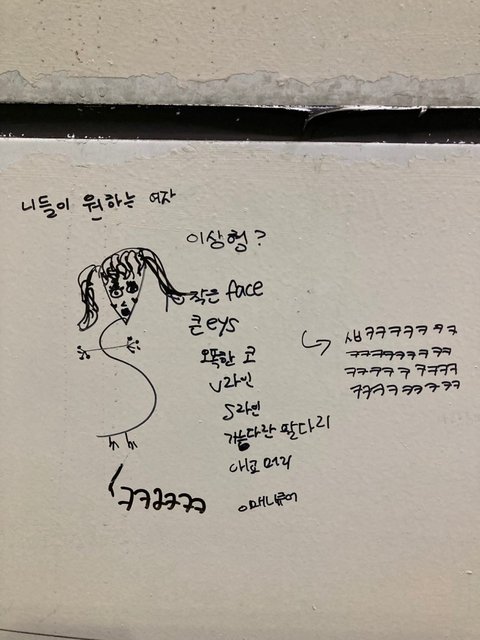 니들이 원하는 여자
이상형?
작은 face
큰 eys
오똑한 코
V라인
S라인
가늘다란 팔다리
머리
ㅋㅋㅋㅋㅋㅋ
ㅋㅋㅋㅋㅋㅋㅋ
ㅋㅋㅋㅋㅋㅋㅋㅋㅋ
ㅋㅋㅋㅋㅋㅋㅋㅋㅋ
ㅋㅋㅋㅋㅋㅋㅋㅋ